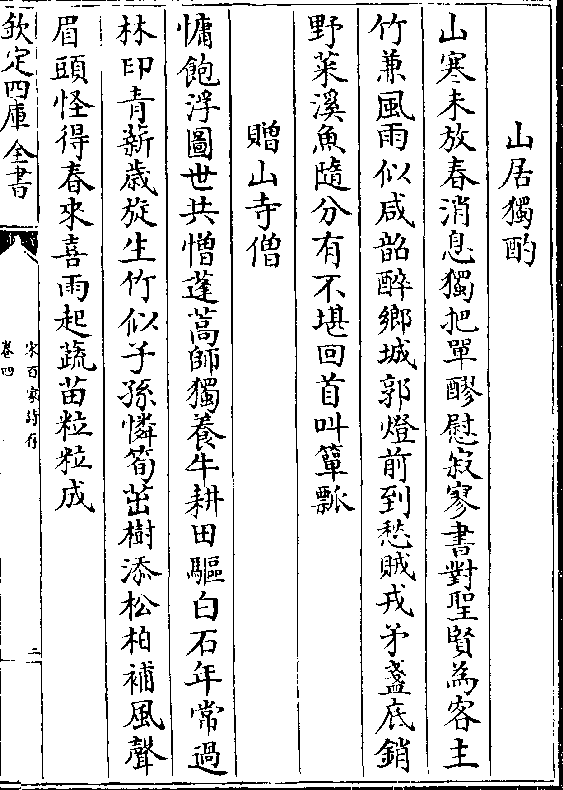 山居獨酌
山寒未放春消息獨把單醪慰寂寥書對聖賢為客主
竹兼風雨似咸韶醉鄉城郭燈前到愁賊戎矛盞底銷
野菜溪魚隨分有不堪回首叫簞瓢
贈山寺僧
慵飽浮圖世共憎蓬蒿師獨養牛耕田驅白石年常過
林印青薪歲旋生竹似子孫憐筍茁樹添松柏補風聲
眉頭怪得春來喜雨起蔬苗粒粒成
欽定四庫全書
宋百家詩存
卷四
二